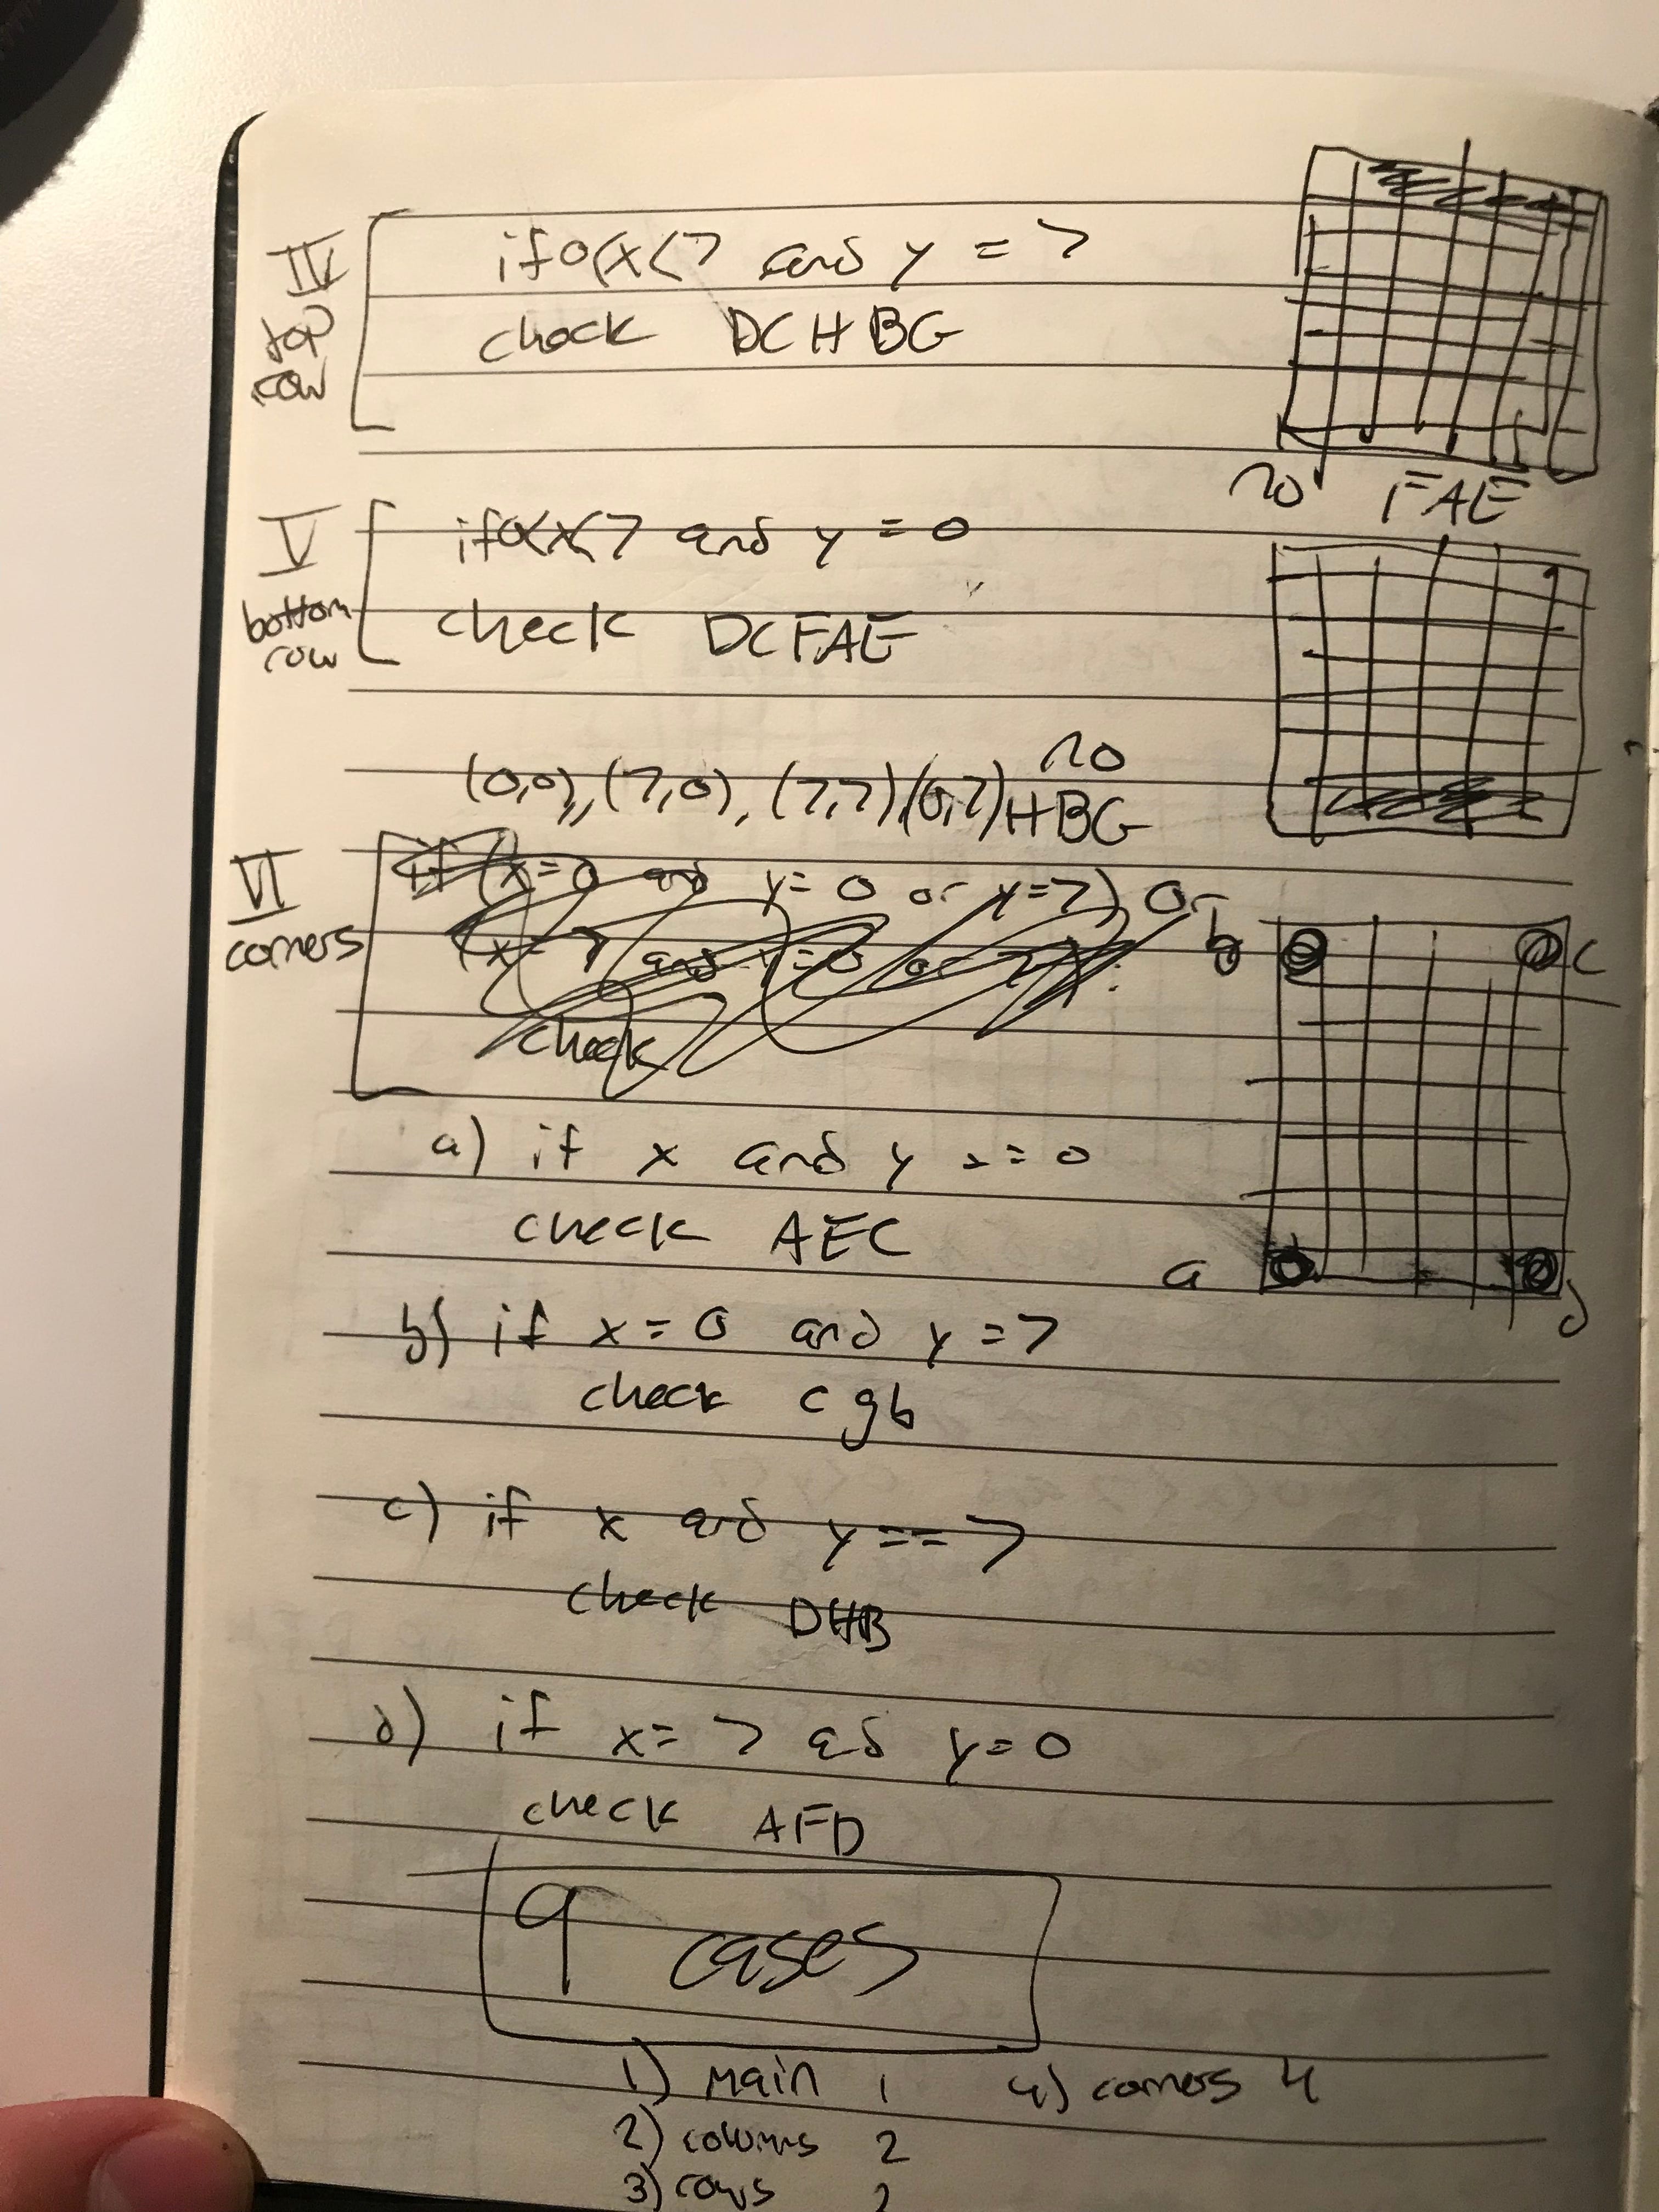 IV
top
row
if 0<x<7 and y = 7
check DCHBG
no FAE
V
bottom
row
if 0<x<7 and y = 0
check DCFAE
no
(0,0), (7,0), (7,7), (0,7) HBG
VI
corners
if (x=0 and y=0 or y=7) or
(x=7 and y=0 or 7):
check
b c
a d
a) if x and y == 0
check AEC
b) if x=0 and y=7
check cgb
c) if x and y==7
check DHB
d) if x=7 and y=0
check AFD
9 cases
1) Main 1 4) corners 4
2) columns 2
3) rows 2